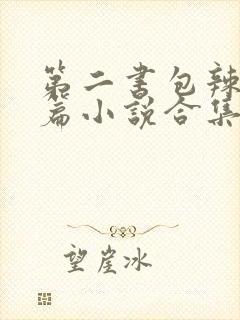 第二书包辣
篇小说合集
望崖冰